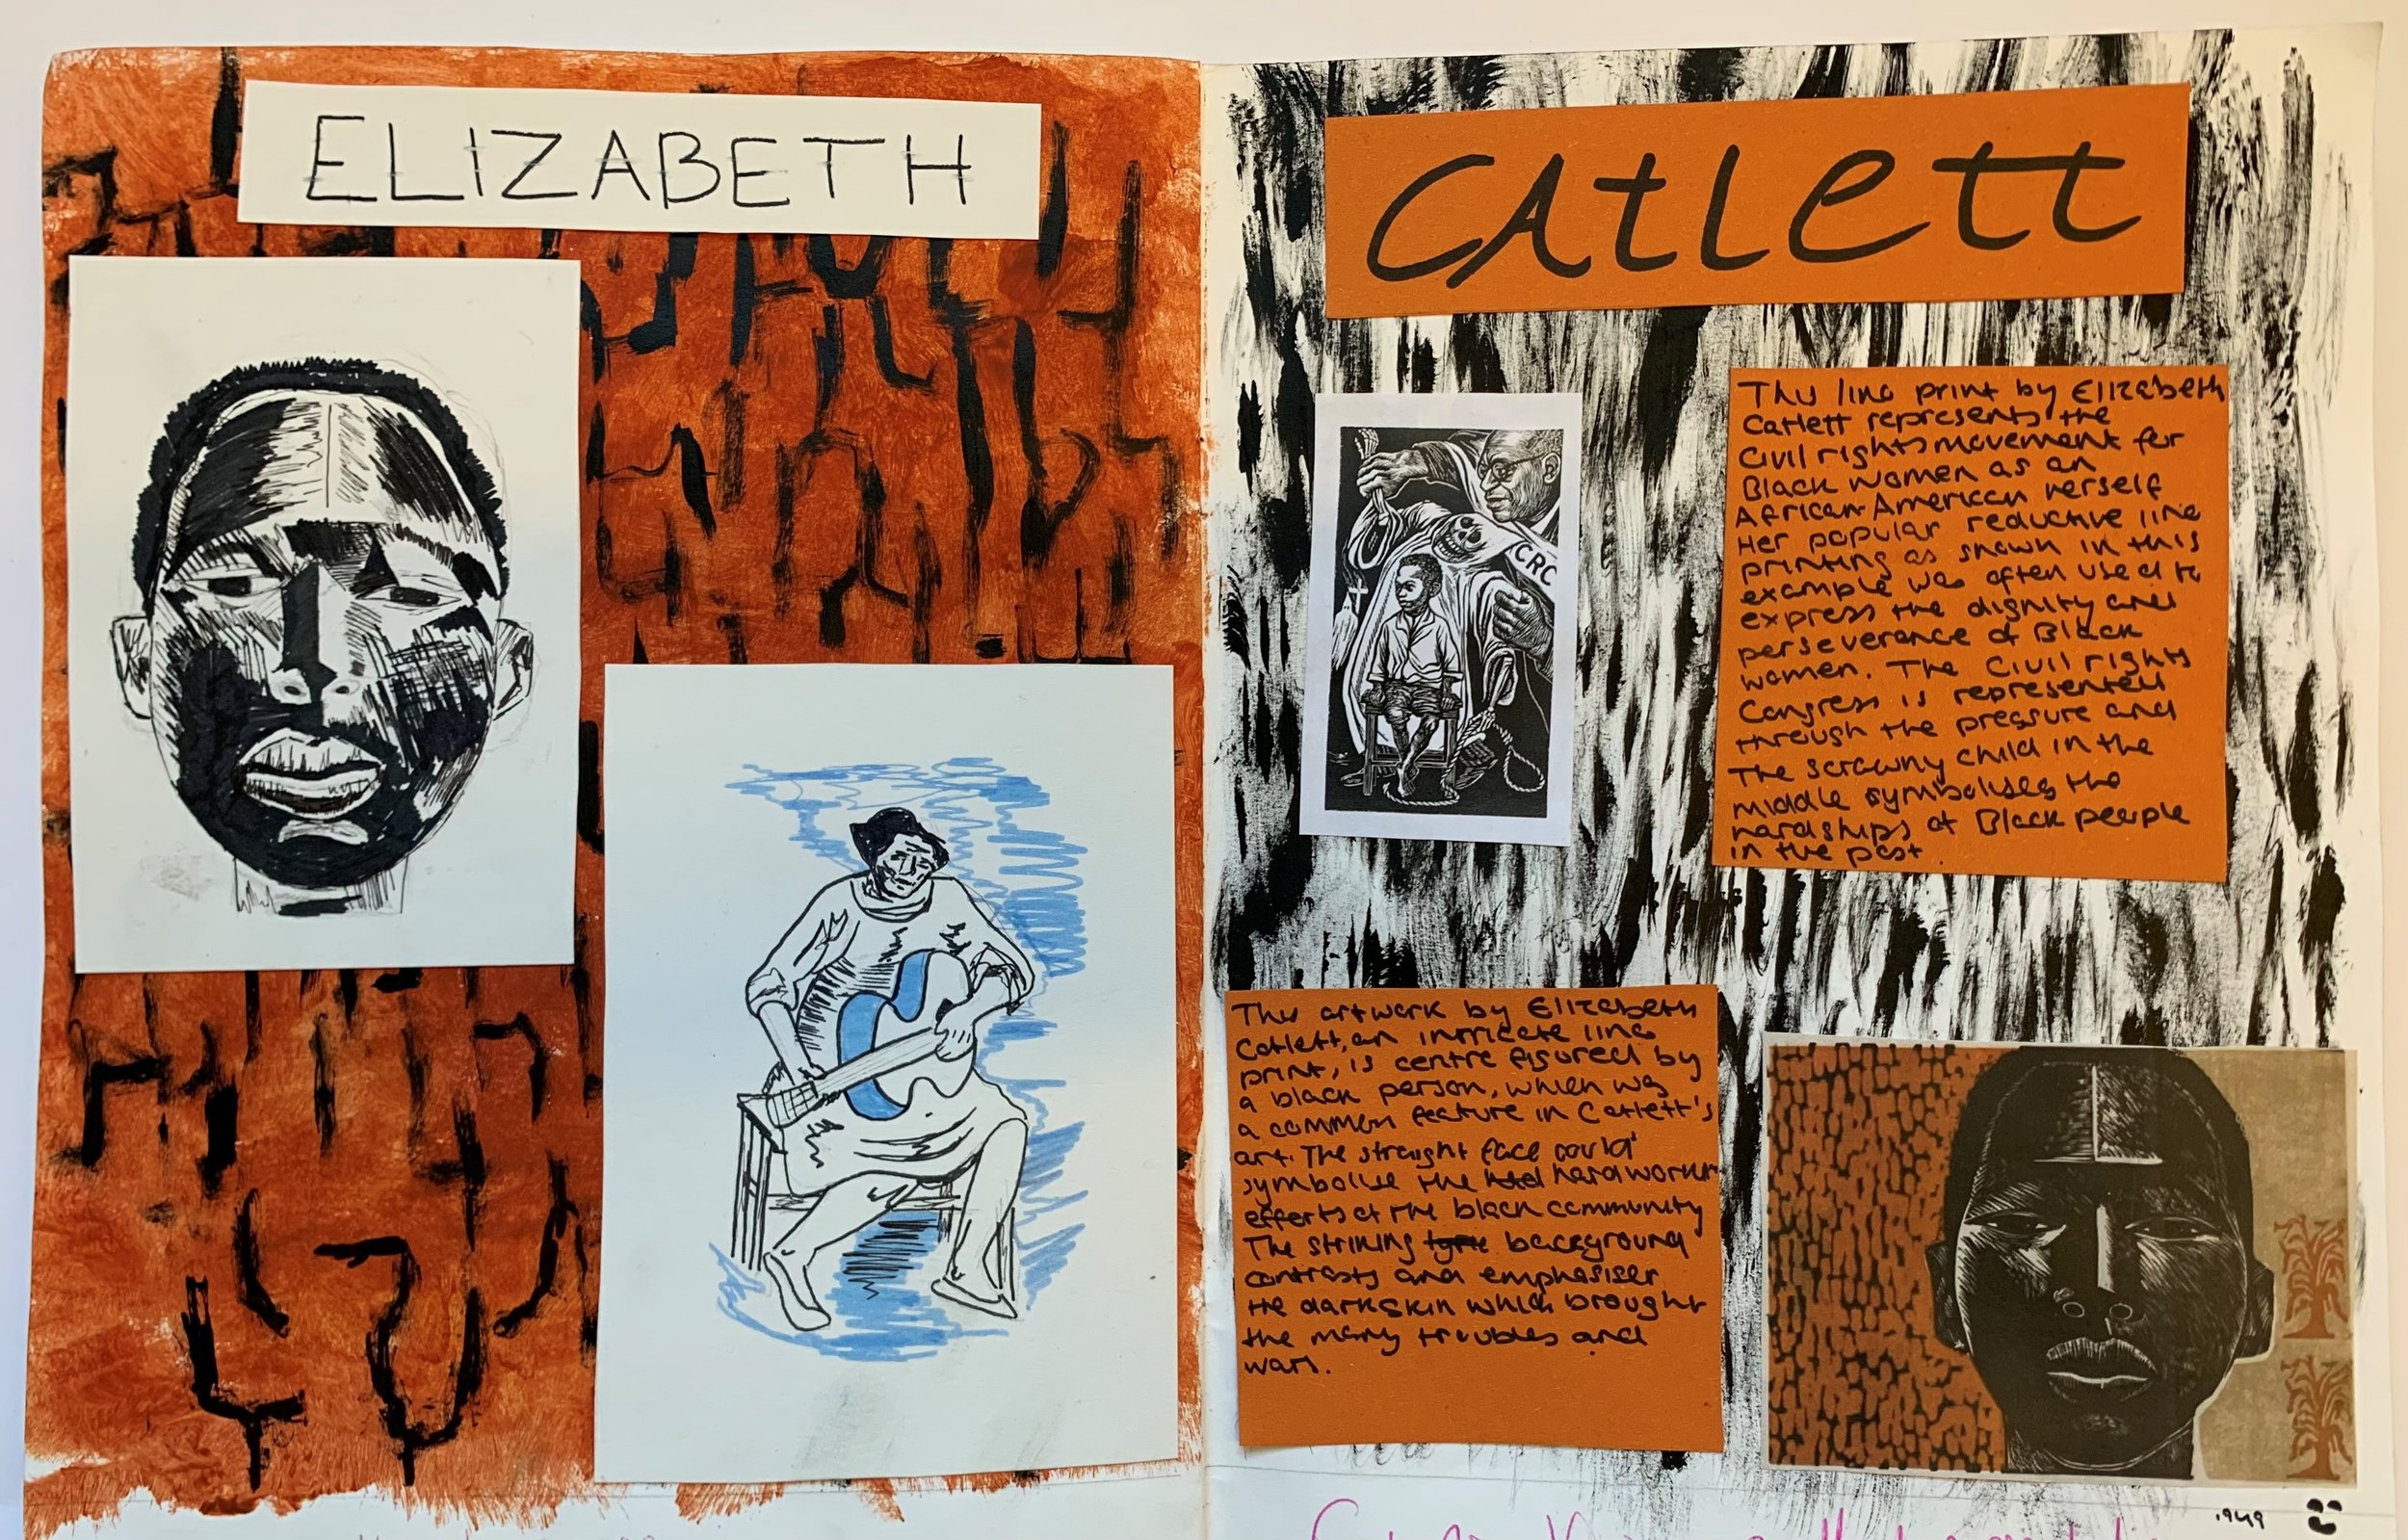 ELIZABETH
CAtlett
This lino print by Elizabeth
Catlett represents the
Civil rights movement for
Black women as an
African-American herself
Her popular reductive lino
printing as shown in this
example was often used to
express the dignity and
perseverance of Black
women. The Civil rights
Congress is represented
through the pressure and
The scrawny child in the
middle symbolises the
hardships of Black people
in the past.
CRC
This artwork by Elizabeth
Catlett, an intricate lino
print, is centre figured by
a black person, which was
a common feature in Catlett's
art. The straight face could
symbolise the hard work
efforts of the black community
The striking background
contrasts and emphasises
the dark skin which brought
the many troubles and
wars.
1949